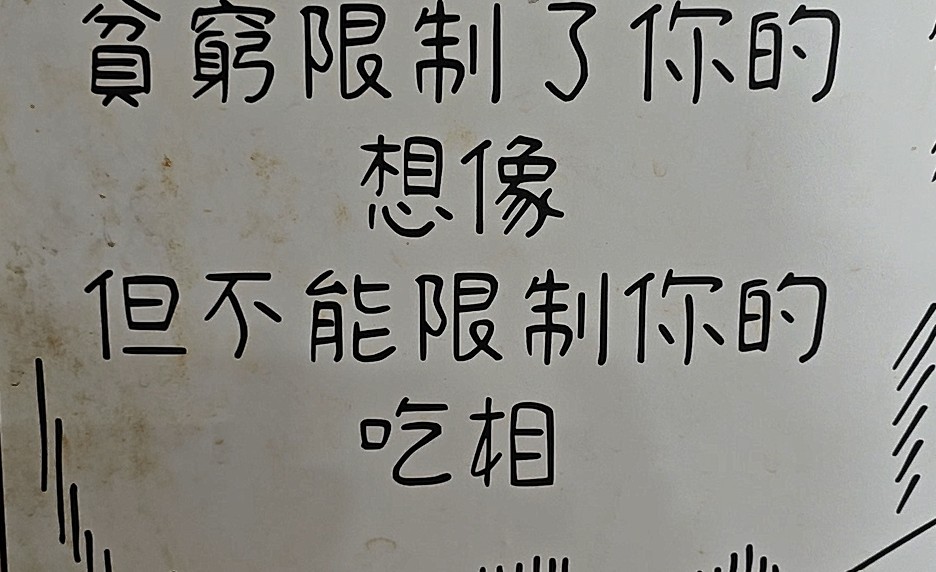 貧窮限制了你的
想像
但不能限制你的
吃相